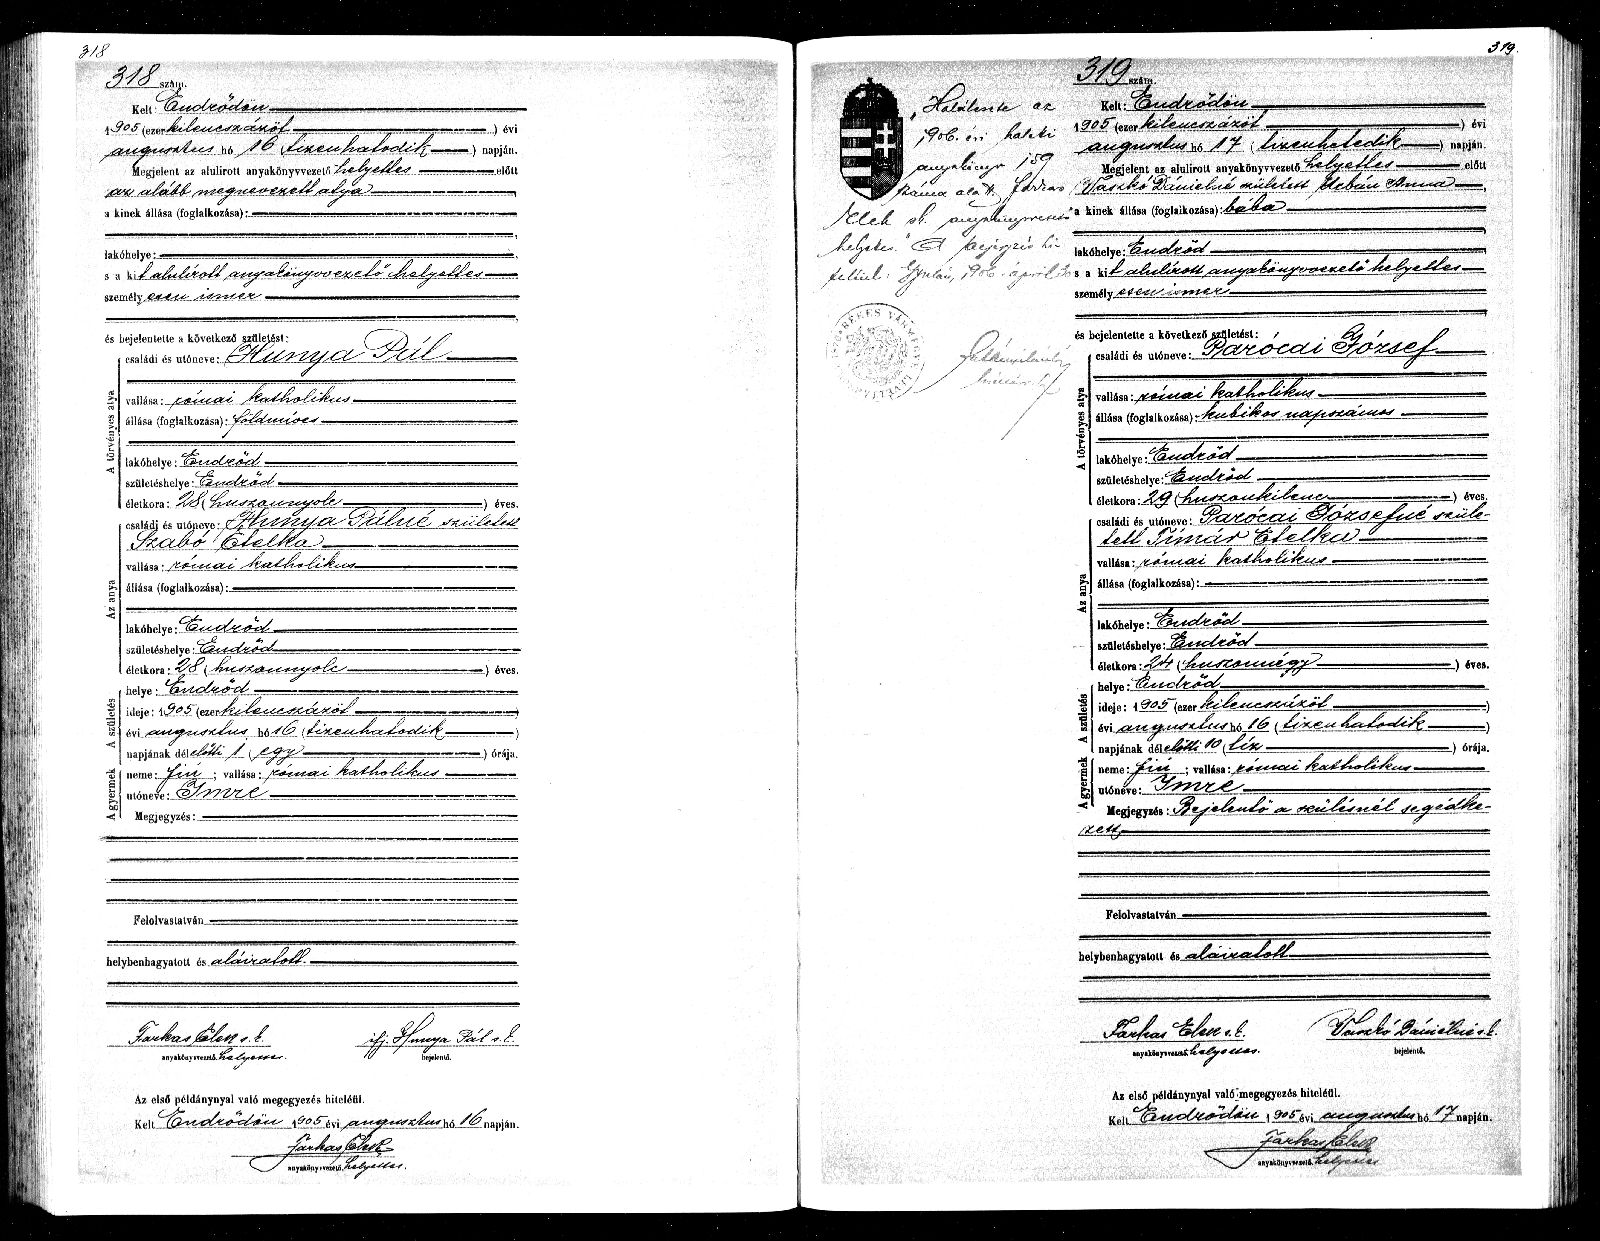 318
318 szám.
Kelt: Endrődön
1905 (ezer kilencszázöt ) évi
augusztus hó 16 (tizenhatodik ) napján.
Megjelent az alulirott anyakönyvvezető helyettes előtt
az alább megnevezett atya
a kinek állása (foglalkozása):
lakóhelye:
s a kit alulírott anyakönyvvezető helyettes
személyesen ismer
és bejelentette a következő születést:
A törvényes atya
családi és utóneve: Hunya Pál
vallása: római katholikus
állása (foglalkozása): földmíves
lakóhelye: Endrőd
születéshelye: Endrőd
életkora: 28 (huszonnyolc ) éves.
Az anya
családi és utóneve: Hunya Pálné született
Szabó Etelka
vallása: római katholikus
állása (foglalkozása):
lakóhelye: Endrőd
születéshelye: Endrőd
életkora: 28 (huszonnyolc ) éves.
A születés
helye: Endrőd
ideje: 1905 (ezer kilencszázöt )
évi augusztus hó 16 (tizenhatodik )
napjának délelőtti 1 (egy ) órája.
A gyermek
neme: fiú ; vallása: római katholikus
utóneve: Imre
Megjegyzés:
Felolvastatván
helybenhagyatott és aláiratott.
Farkas Elek s. k. ifj. Hunya Pál s. k.
anyakönyvvezető helyettes. bejelentő.
Az első példánynyal való megegyezés hiteléül.
Kelt Endrődön 1905 évi augusztus hó 16 napján.
Farkas Elek
anyakönyvvezető helyettes.
319.
"Halálesete az
1906. évi haláli
anyakönyv 159
száma alatt. Farkas
Elek sk. anyakönyvvezető
helyettes." A bejegyzés hi-
teléül. Gyulán, 1906. április 30
BÉKÉS VÁRMEGYE
319 szám.
Kelt: Endrődön
1905 (ezer kilencszázöt ) évi
augusztus hó 17 (tizenhetedik ) napján.
Megjelent az alulirott anyakönyvvezető helyettes előtt
Vaszkó Dánielné született Urbán Anna
a kinek állása (foglalkozása): bába
lakóhelye: Endrőd
s a kit alulírott anyakönyvvezető helyettes
személyesen ismer
és bejelentette a következő születést:
A törvényes atya
családi és utóneve: Parócai József
vallása: római katholikus
állása (foglalkozása): kubikos napszámos
lakóhelye: Endrőd
születéshelye: Endrőd
életkora: 29 (huszonkilenc ) éves.
Az anya
családi és utóneve: Parócai Józsefné szüle-
tett Tímár Etelka
vallása: római katholikus
állása (foglalkozása):
lakóhelye: Endrőd
születéshelye: Endrőd
életkora: 24 (huszonnégy ) éves.
A születés
helye: Endrőd
ideje: 1905 (ezer kilencszázöt )
évi augusztus hó 16 (tizenhatodik )
napjának délelőtti 10 (tíz ) órája.
A gyermek
neme: fiú ; vallása: római katholikus
utóneve: Imre
Megjegyzés: Bejelentő a szülésnél segédke-
zett
Felolvastatván
helybenhagyatott és aláiratott
Farkas Elek s. k. Vaszkó Dánielné s. k.
anyakönyvvezető helyettes. bejelentő.
Az első példánynyal való megegyezés hiteléül.
Kelt Endrődön 1905 évi augusztus hó 17 napján.
Farkas Elek
anyakönyvvezető helyettes